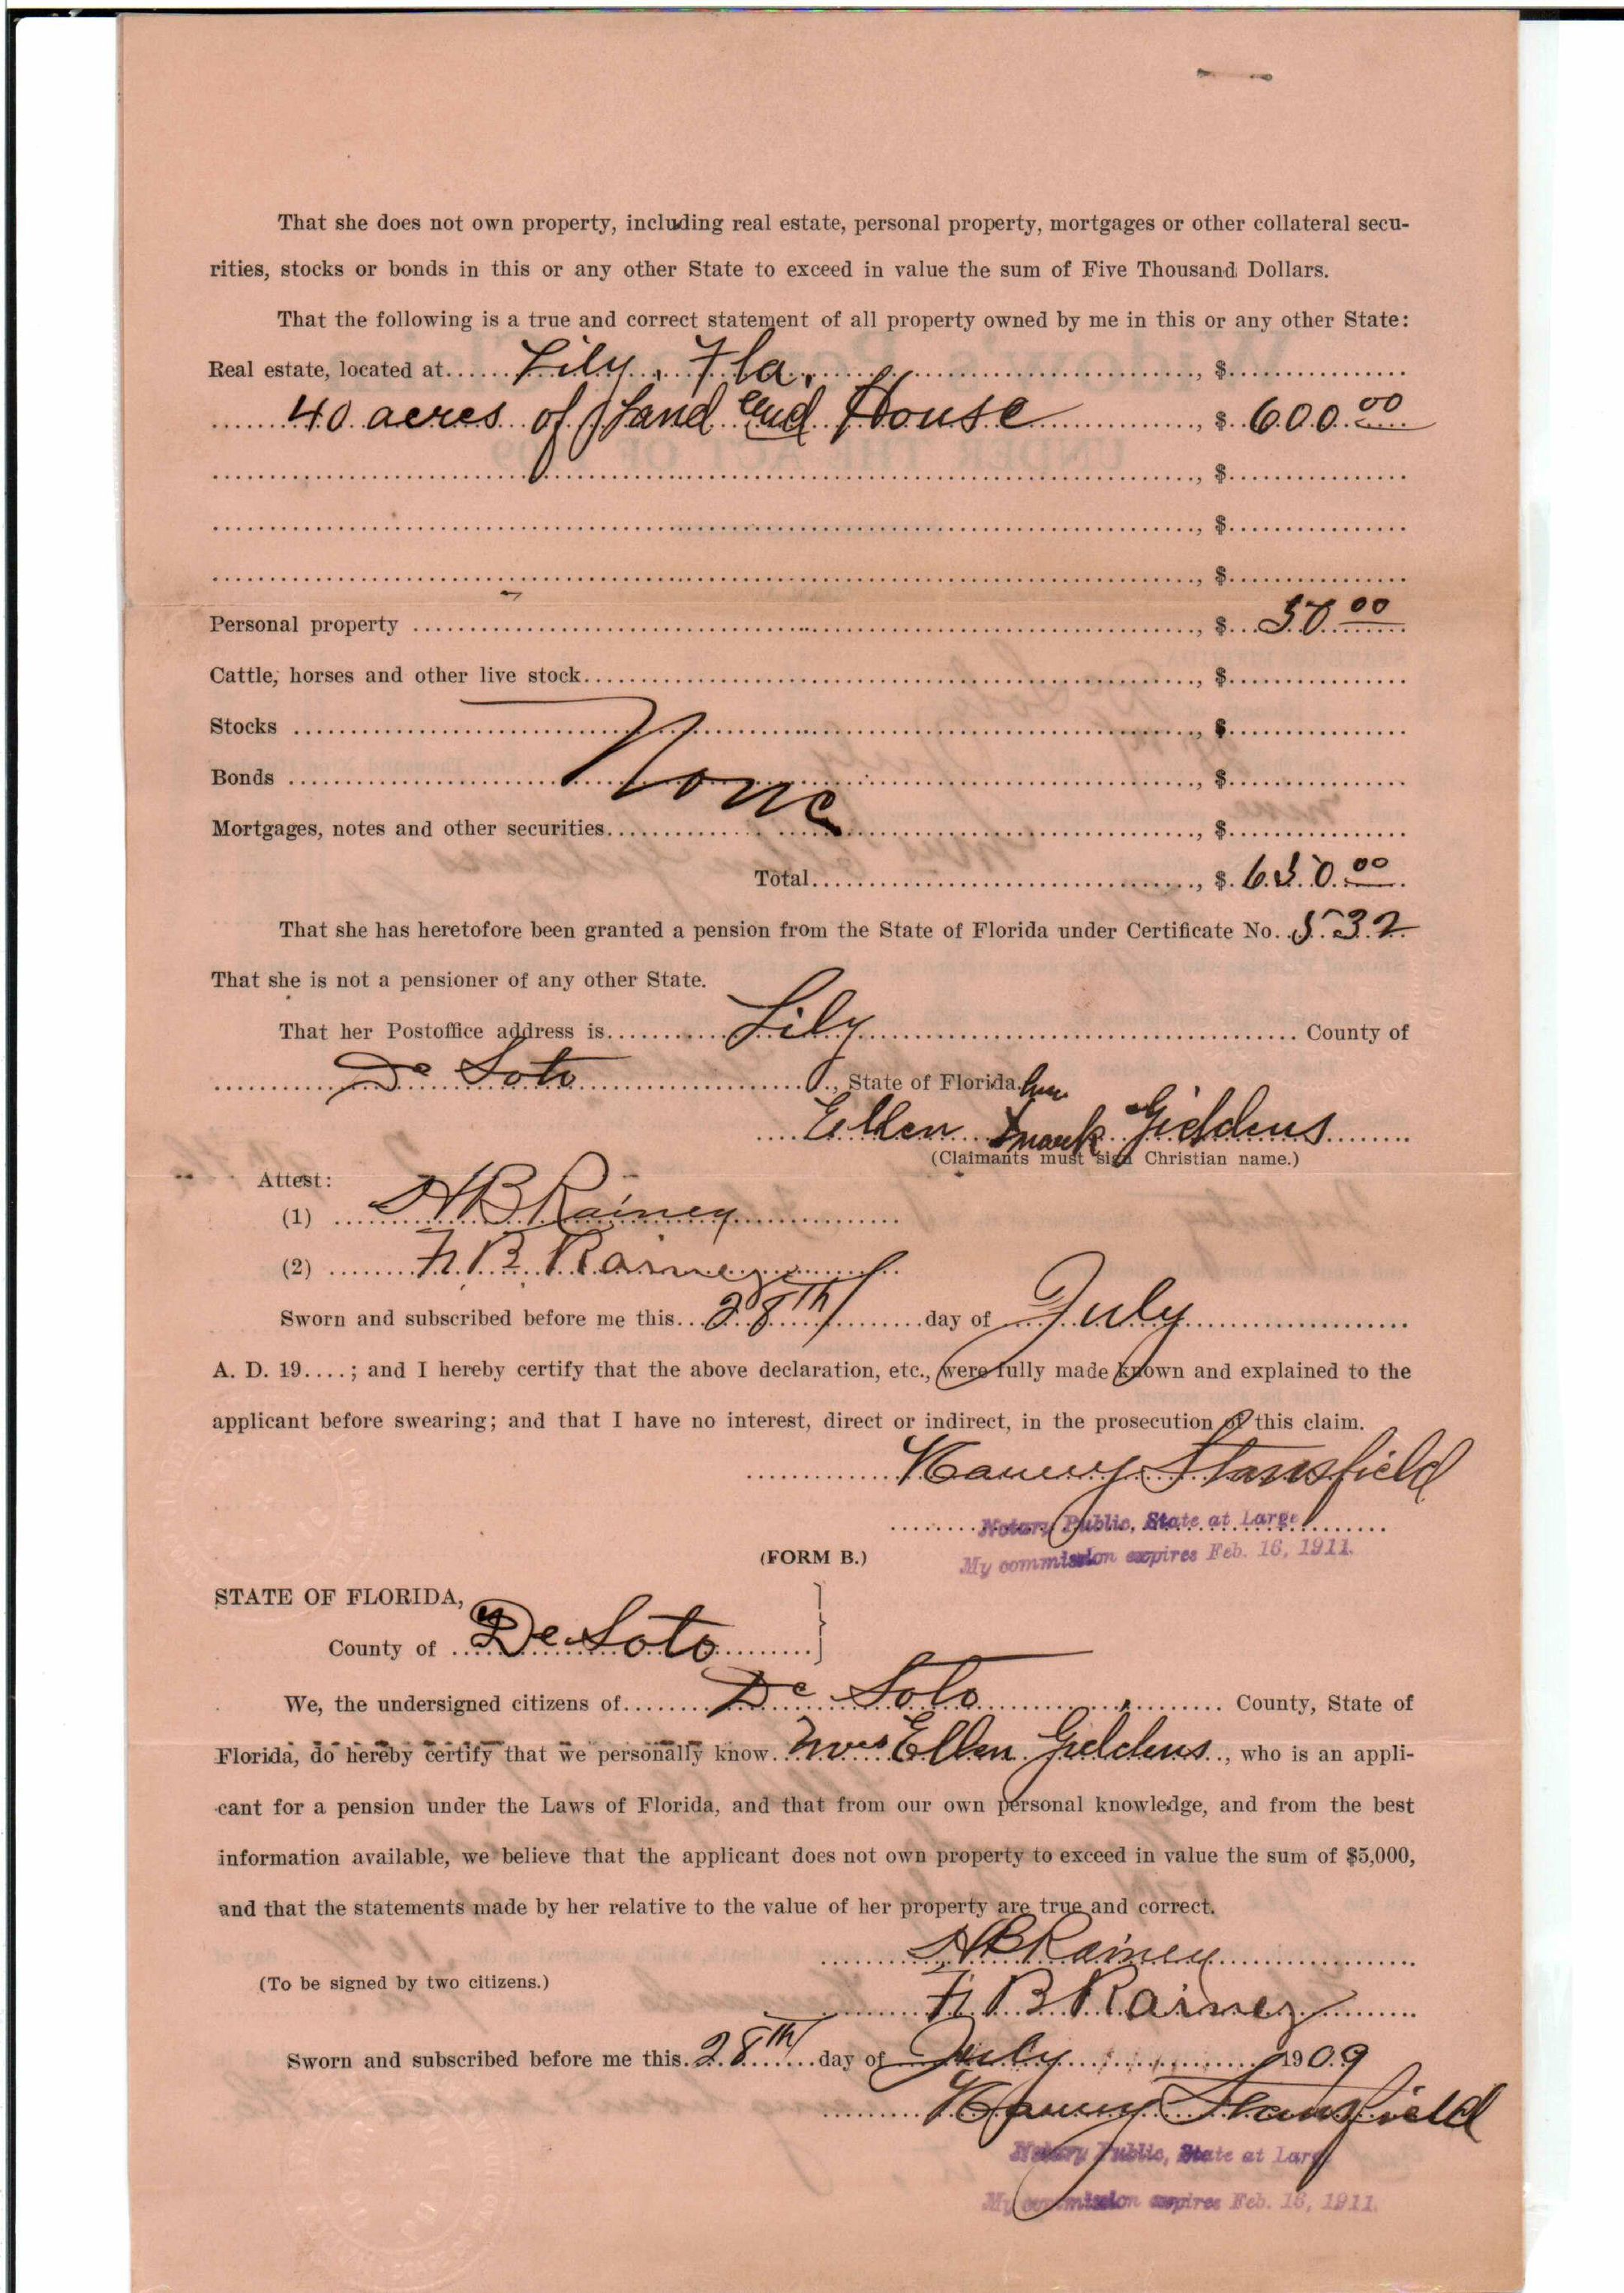 That she does not own property, including real estate, personal property, mortgages or other collateral secu-
rities, stocks or bonds in this or any other State to exceed in value the sum of Five Thousand Dollars.
That the following is a true and correct statement of all property owned by me in this or any other State:
Real estate, located at...... Lily, Fla. ......, $................
......40 acres of land and House ......, $ 600.00
......, $................
......, $................
......, $................
Personal property ......, $...50.00
Cattle, horses and other live stock......, $................
Stocks ......, $................
None
Bonds ......, $................
Mortgages, notes and other securities......, $................
Total......, $ 650.00
That she has heretofore been granted a pension from the State of Florida under Certificate No. 532
That she is not a pensioner of any other State.
That her Postoffice address is...... Lily ...... County of
...... De Soto ......, State of Florida.
her
Ellen x mark Giddens
(Claimants must sign Christian name.)
Attest:
(1) H B Rainey
(2) F. B. Rainey
Sworn and subscribed before me this...28th......day of...July......
A. D. 19....; and I hereby certify that the above declaration, etc., were fully made known and explained to the
applicant before swearing; and that I have no interest, direct or indirect, in the prosecution of this claim.
Stansfield
Notary Public, State at Large
My commission expires Feb. 16, 1911.
(FORM B.)
STATE OF FLORIDA,
County of ...De Soto......
We, the undersigned citizens of...... De Soto ...... County, State of
Florida, do hereby certify that we personally know...Mrs Ellen Giddens.., who is an appli-
cant for a pension under the Laws of Florida, and that from our own personal knowledge, and from the best
information available, we believe that the applicant does not own property to exceed in value the sum of $5,000,
and that the statements made by her relative to the value of her property are true and correct.
H B Rainey
(To be signed by two citizens.)
F. B Rainey
Sworn and subscribed before me this.28th....day of July ......1909
Stansfield
Notary Public, State at Large
My commission expires Feb. 16, 1911.